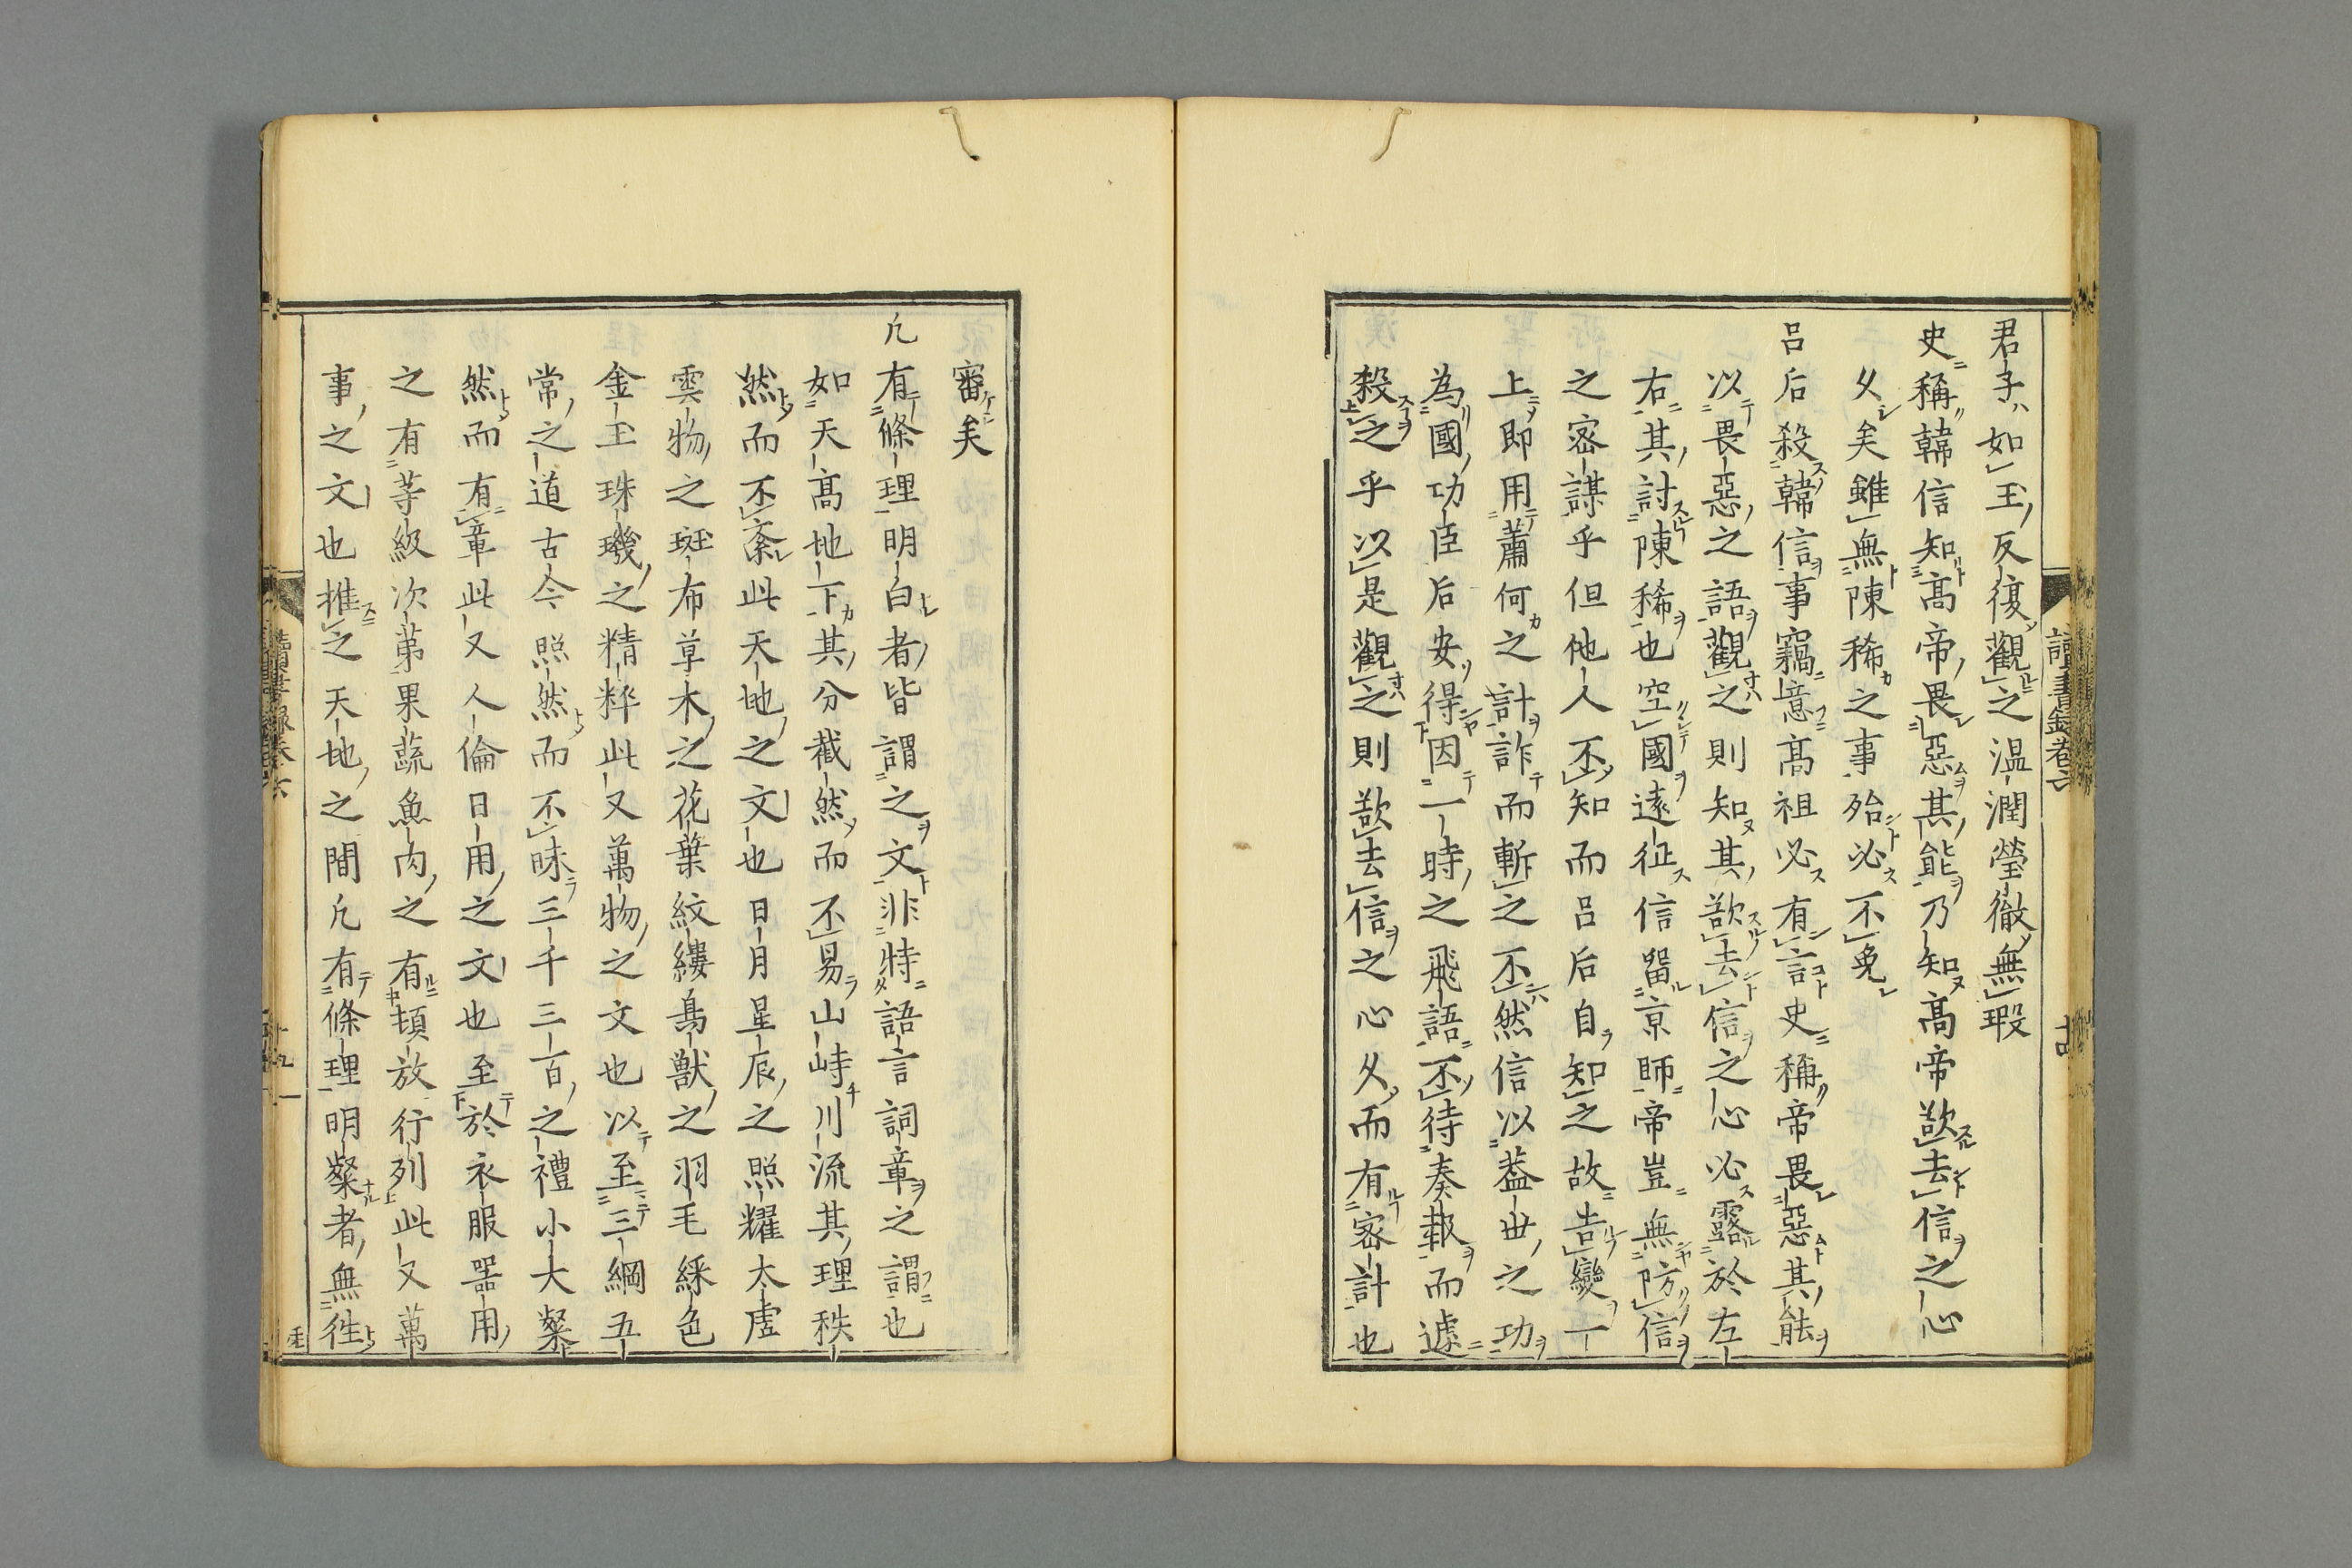 君子如玉反復觀之温潤瑩徹無瑕
史稱韓信知高帝畏惡其能乃知高帝欲去信之心
久矣雖無陳豨之事殆必不免
呂后殺韓信事竊意高祖必有言史稱帝畏惡其能
以畏惡之語觀之則知其欲去信之心必露於左
右其討陳豨也空國遠征信留京師帝豈無防信
之密謀乎但他人不知而呂后自知之故告變一
上即用蕭何之計詐而斬之不然信以蓋世之功
為國功臣后安得因一時之飛語不待奏報而遽
殺之乎以是觀之則欲去信之心久而有密計也
審矣
凡有條理明白者皆謂之文非特語言詞章之謂也
如天高地下其分截然而不易山峙川流其理秩
然而不紊此天地之文也日月星辰之照耀太虛
雲物之斑布草木之花葉紋縷鳥獸之羽毛綵色
金玉珠璣之精粹此又萬物之文也以至三綱五
常之道古今照然而不昧三千三百之禮小大粲
然而有章此又人倫日用之文也至於衣服器用
之有等級次第果蔬魚肉之有頓放行列此又萬
事之文也推之天地之間凡有條理明粲者無徃
讀書録卷六